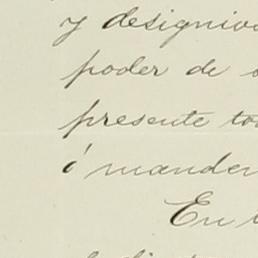 y designio
poder de
presente to
í mander
En